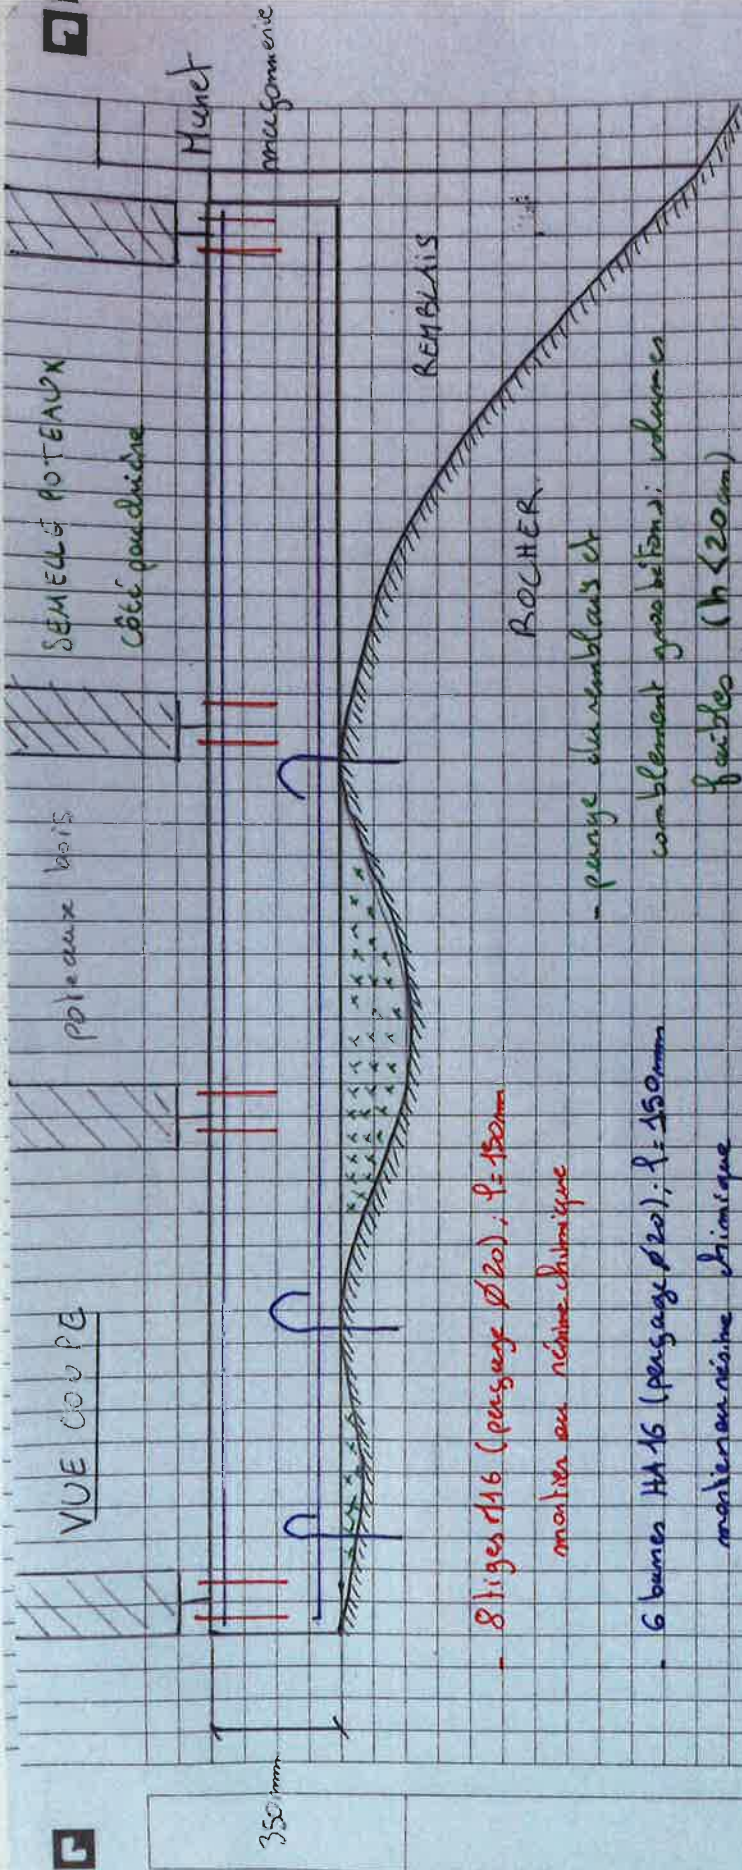 VUE COUPE
poteaux bois
SEMELLE POTEAUX
côté poudrière
Muret
maçonnerie
350mm
REMBLAIS
ROCHER
- 8 tiges M16 (perçage Ø20); l=150mm
mortier ou résine chimique
- 6 barres HA16 (perçage Ø20); l=150mm
mortier ou résine chimique
- purge du remblais et
comblement gros béton si volumes
faibles (h<20cm)